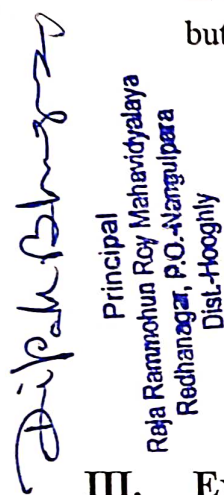 but
Principal
Raja Rammohun Roy Mahavidyalaya
Radhanagar, P.O.-Nangulpara
Dist.-Hooghly
III.